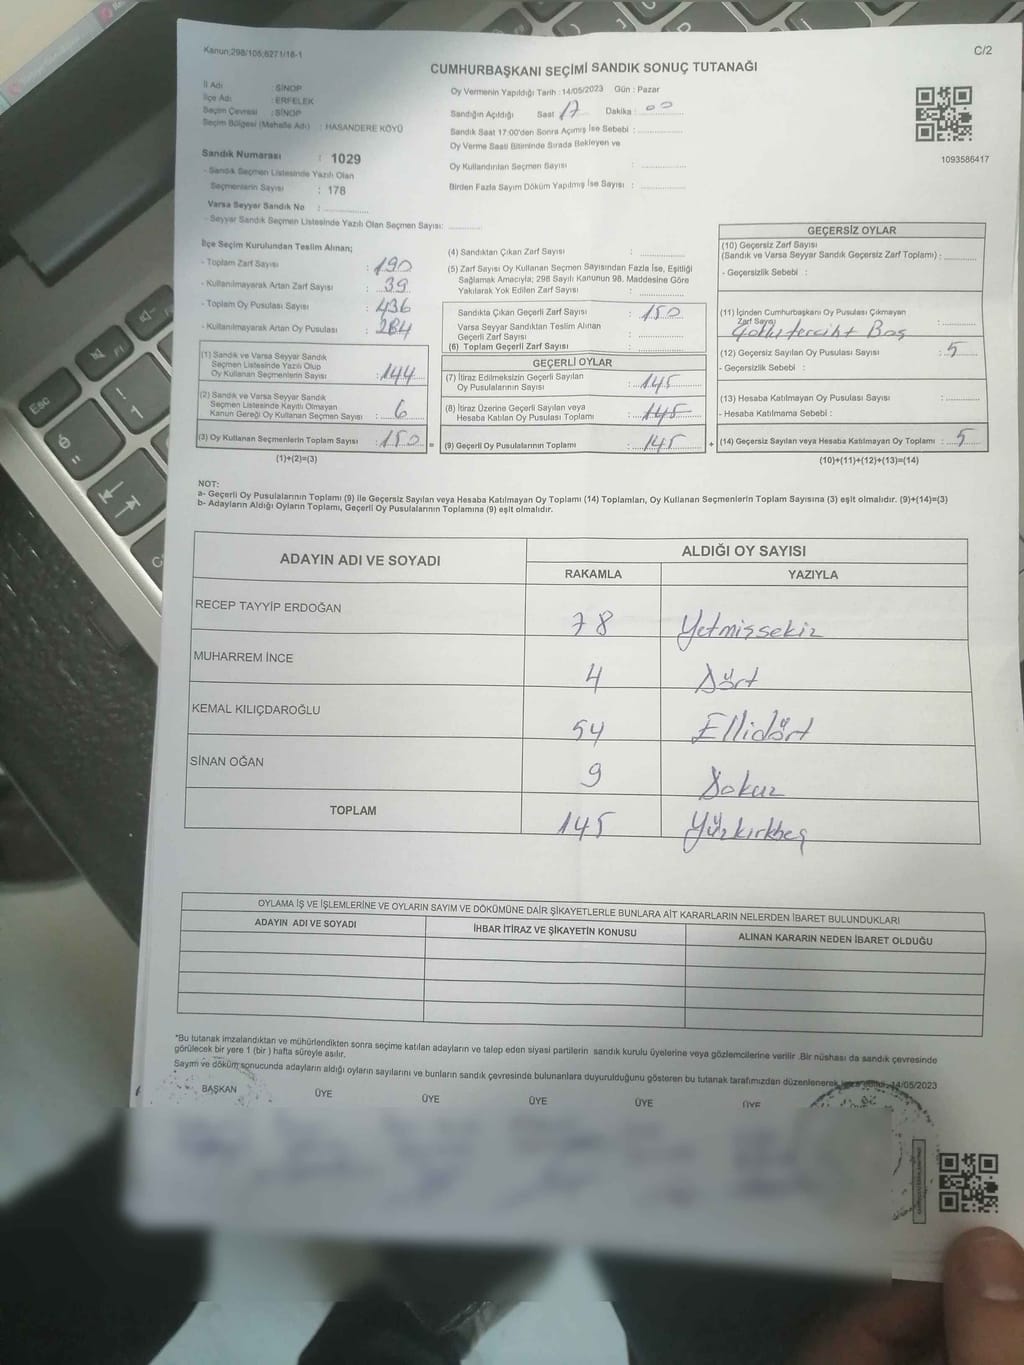 Kanun;298/105;6271/18-1
C/2
CUMHURBAŞKANI SEÇİMİ SANDIK SONUÇ TUTANAĞI
İl Adı : SİNOP
İlçe Adı : ERFELEK
Seçim Çevresi : SİNOP
Seçim Bölgesi (Mahalle Adı) : HASANDERE KÖYÜ
Sandık Numarası : 1029
- Sandık Seçmen Listesinde Yazılı Olan
Seçmenlerin Sayısı : 178
Varsa Seyyar Sandık No : ..............
- Seyyar Sandık Seçmen Listesinde Yazılı Olan Seçmen Sayısı: ..........
Oy Vermenin Yapıldığı Tarih : 14/05/2023 Gün : Pazar
Sandığın Açıldığı Saat 17 Dakika : 00
Sandık Saat 17:00'den Sonra Açımış İse Sebebi : ..............
Oy Verme Saati Bitiminde Sırada Bekleyen ve
Oy Kullandırılan Seçmen Sayısı : ..............
Birden Fazla Sayım Döküm Yapılmış İse Sayısı : ..............
1093586417
İlçe Seçim Kurulundan Teslim Alınan;
- Toplam Zarf Sayısı : 190
- Kullanılmayarak Artan Zarf Sayısı : 39
- Toplam Oy Pusulası Sayısı : 436
- Kullanılmayarak Artan Oy Pusulası : 284
(1) Sandık ve Varsa Seyyar Sandık
Seçmen Listesinde Yazılı Olup
Oy Kullanan Seçmenlerin Sayısı : 144
(2) Sandık ve Varsa Seyyar Sandık
Seçmen Listesinde Kayıtlı Olmayan
Kanun Gereği Oy Kullanan Seçmen Sayısı : 6
(3) Oy Kullanan Seçmenlerin Toplam Sayısı : 150 =
(1)+(2)=(3)
(4) Sandıktan Çıkan Zarf Sayısı : ..............
(5) Zarf Sayısı Oy Kullanan Seçmen Sayısından Fazla İse, Eşitliği
Sağlamak Amacıyla; 298 Sayılı Kanunun 98. Maddesine Göre
Yakılarak Yok Edilen Zarf Sayısı : ..............
Sandıkta Çıkan Geçerli Zarf Sayısı : 150
Varsa Seyyar Sandıktan Teslim Alınan
Geçerli Zarf Sayısı : ..............
(6) Toplam Geçerli Zarf Sayısı : ..............
GEÇERLİ OYLAR
(7) İtiraz Edilmeksizin Geçerli Sayılan
Oy Pusulalarının Sayısı : 145
(8) İtiraz Üzerine Geçerli Sayılan veya
Hesaba Katılan Oy Pusulası Toplamı : 145
(9) Geçerli Oy Pusulalarının Toplamı : 145 +
GEÇERSİZ OYLAR
(10) Geçersiz Zarf Sayısı
(Sandık ve Varsa Seyyar Sandık Geçersiz Zarf Toplamı) : ..........
- Geçersizlik Sebebi :
(11) İçinden Cumhurbaşkanı Oy Pusulası Çıkmayan
Zarf Sayısı : ..........
Çoklu tercih + Boş
(12) Geçersiz Sayılan Oy Pusulası Sayısı : 5
- Geçersizlik Sebebi :
(13) Hesaba Katılmayan Oy Pusulası Sayısı : ..........
- Hesaba Katılmama Sebebi :
(14) Geçersiz Sayılan veya Hesaba Katılmayan Oy Toplamı : 5
(10)+(11)+(12)+(13)=(14)
NOT:
a- Geçerli Oy Pusulalarının Toplamı (9) ile Geçersiz Sayılan veya Hesaba Katılmayan Oy Toplamı (14) Toplamları, Oy Kullanan Seçmenlerin Toplam Sayısına (3) eşit olmalıdır. (9)+(14)=(3)
b- Adayların Aldığı Oyların Toplamı, Geçerli Oy Pusulalarının Toplamına (9) eşit olmalıdır.
ADAYIN ADI VE SOYADI
ALDIĞI OY SAYISI
RAKAMLA YAZIYLA
RECEP TAYYİP ERDOĞAN 78 Yetmişsekiz
MUHARREM İNCE 4 Dört
KEMAL KILIÇDAROĞLU 54 Ellidört
SİNAN OĞAN 9 Dokuz
TOPLAM 145 Yüzkırkbeş
OYLAMA İŞ VE İŞLEMLERİNE VE OYLARIN SAYIM VE DÖKÜMÜNE DAİR ŞİKAYETLERLE BUNLARA AİT KARARLARIN NELERDEN İBARET BULUNDUKLARI
ADAYIN ADI VE SOYADI İHBAR İTİRAZ VE ŞİKAYETİN KONUSU ALINAN KARARIN NEDEN İBARET OLDUĞU
*Bu tutanak imzalandıktan ve mühürlendikten sonra seçime katılan adayların ve talep eden siyasi partilerin sandık kurulu üyelerine veya gözlemcilerine verilir .Bir nüshası da sandık çevresinde
görülecek bir yere 1 (bir ) hafta süreyle asılır.
Sayım ve döküm sonucunda adayların aldığı oyların sayılarını ve bunların sandık çevresinde bulunanlara duyurulduğunu gösteren bu tutanak tarafımızdan düzenlenerek 14/05/2023
BAŞKAN ÜYE ÜYE ÜYE ÜYE ÜYE
Esc
F1